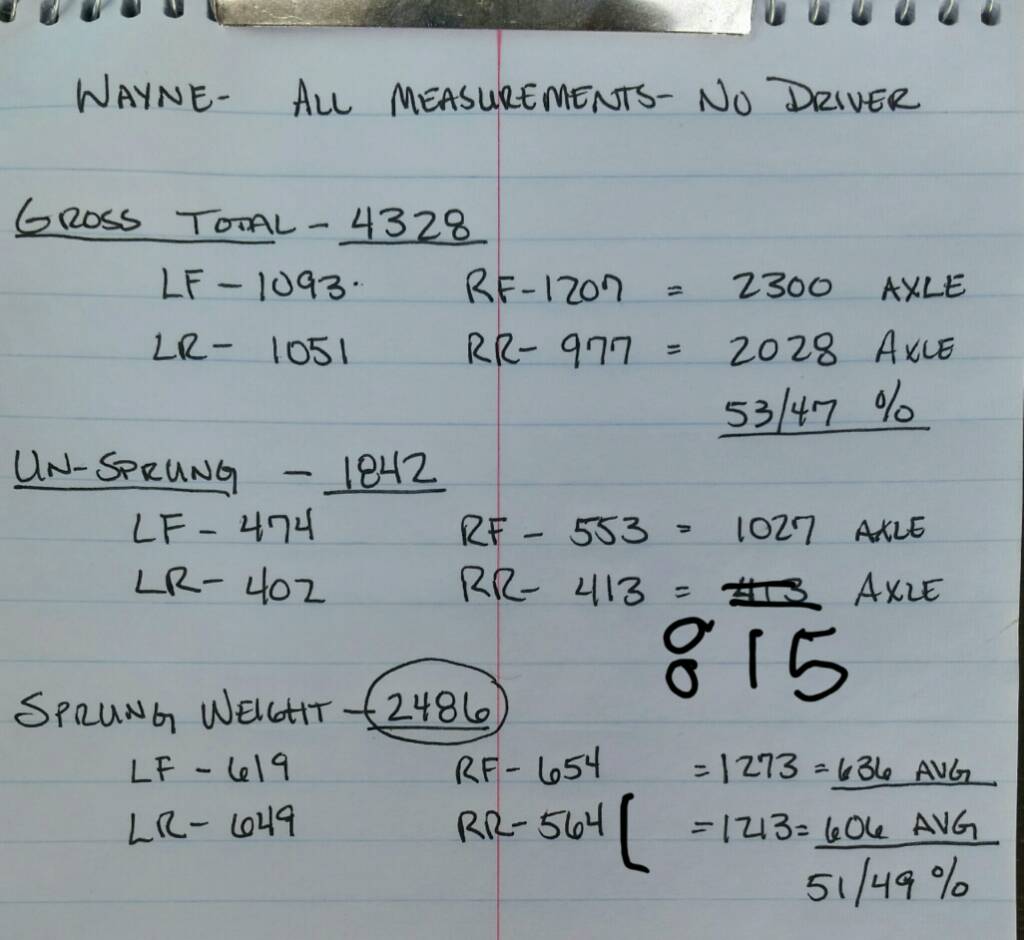 WAYNE- ALL MEASUREMENTS- NO DRIVER
GROSS TOTAL - 4328
LF - 1093. RF-1207 = 2300 AXLE
LR- 1051 RR- 977 = 2028 AXLE
53/47 %
UN-SPRUNG - 1842
LF - 474 RF - 553 = 1027 AXLE
LR- 402 RR- 413 = 413 AXLE
815
SPRUNG WEIGHT - 2486
LF - 619 RF- 654 = 1273 = 636 AVG
LR- 649 RR- 564 ( = 1213 = 606 AVG
51/49 %